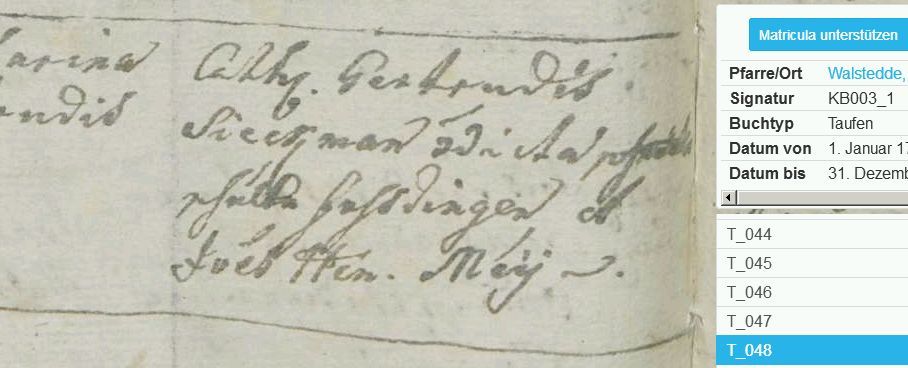 arina
endis
Cath. Gertrudis
Sieckman dicta
schulte
et
Joës Hen. Meÿ
Matricula unterstützen
Pfarre/Ort Walstedde,
Signatur KB003_1
Buchtyp Taufen
Datum von 1. Januar 17
Datum bis 31. Dezemb
T_044
T_045
T_046
T_047
T_048